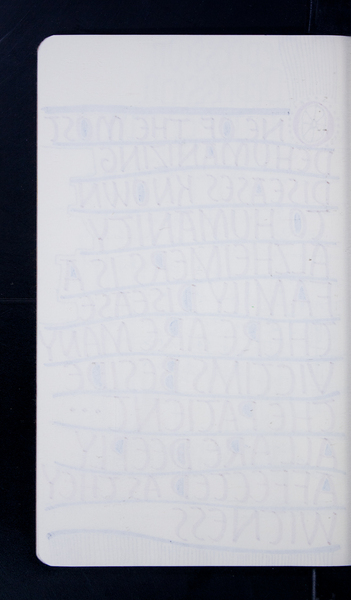 ONE OF THE MOST
DEHUMANIZING
DISEASES KNOWN
TO HUMANITY.
ALZHEIMER'S IS A
FAMILY DISEASE
THERE ARE MANY
VICTIMS BESIDE
THE PATIENT...
ALL ARE DEEPLY
AFFECTED AS THEY
WITNESS